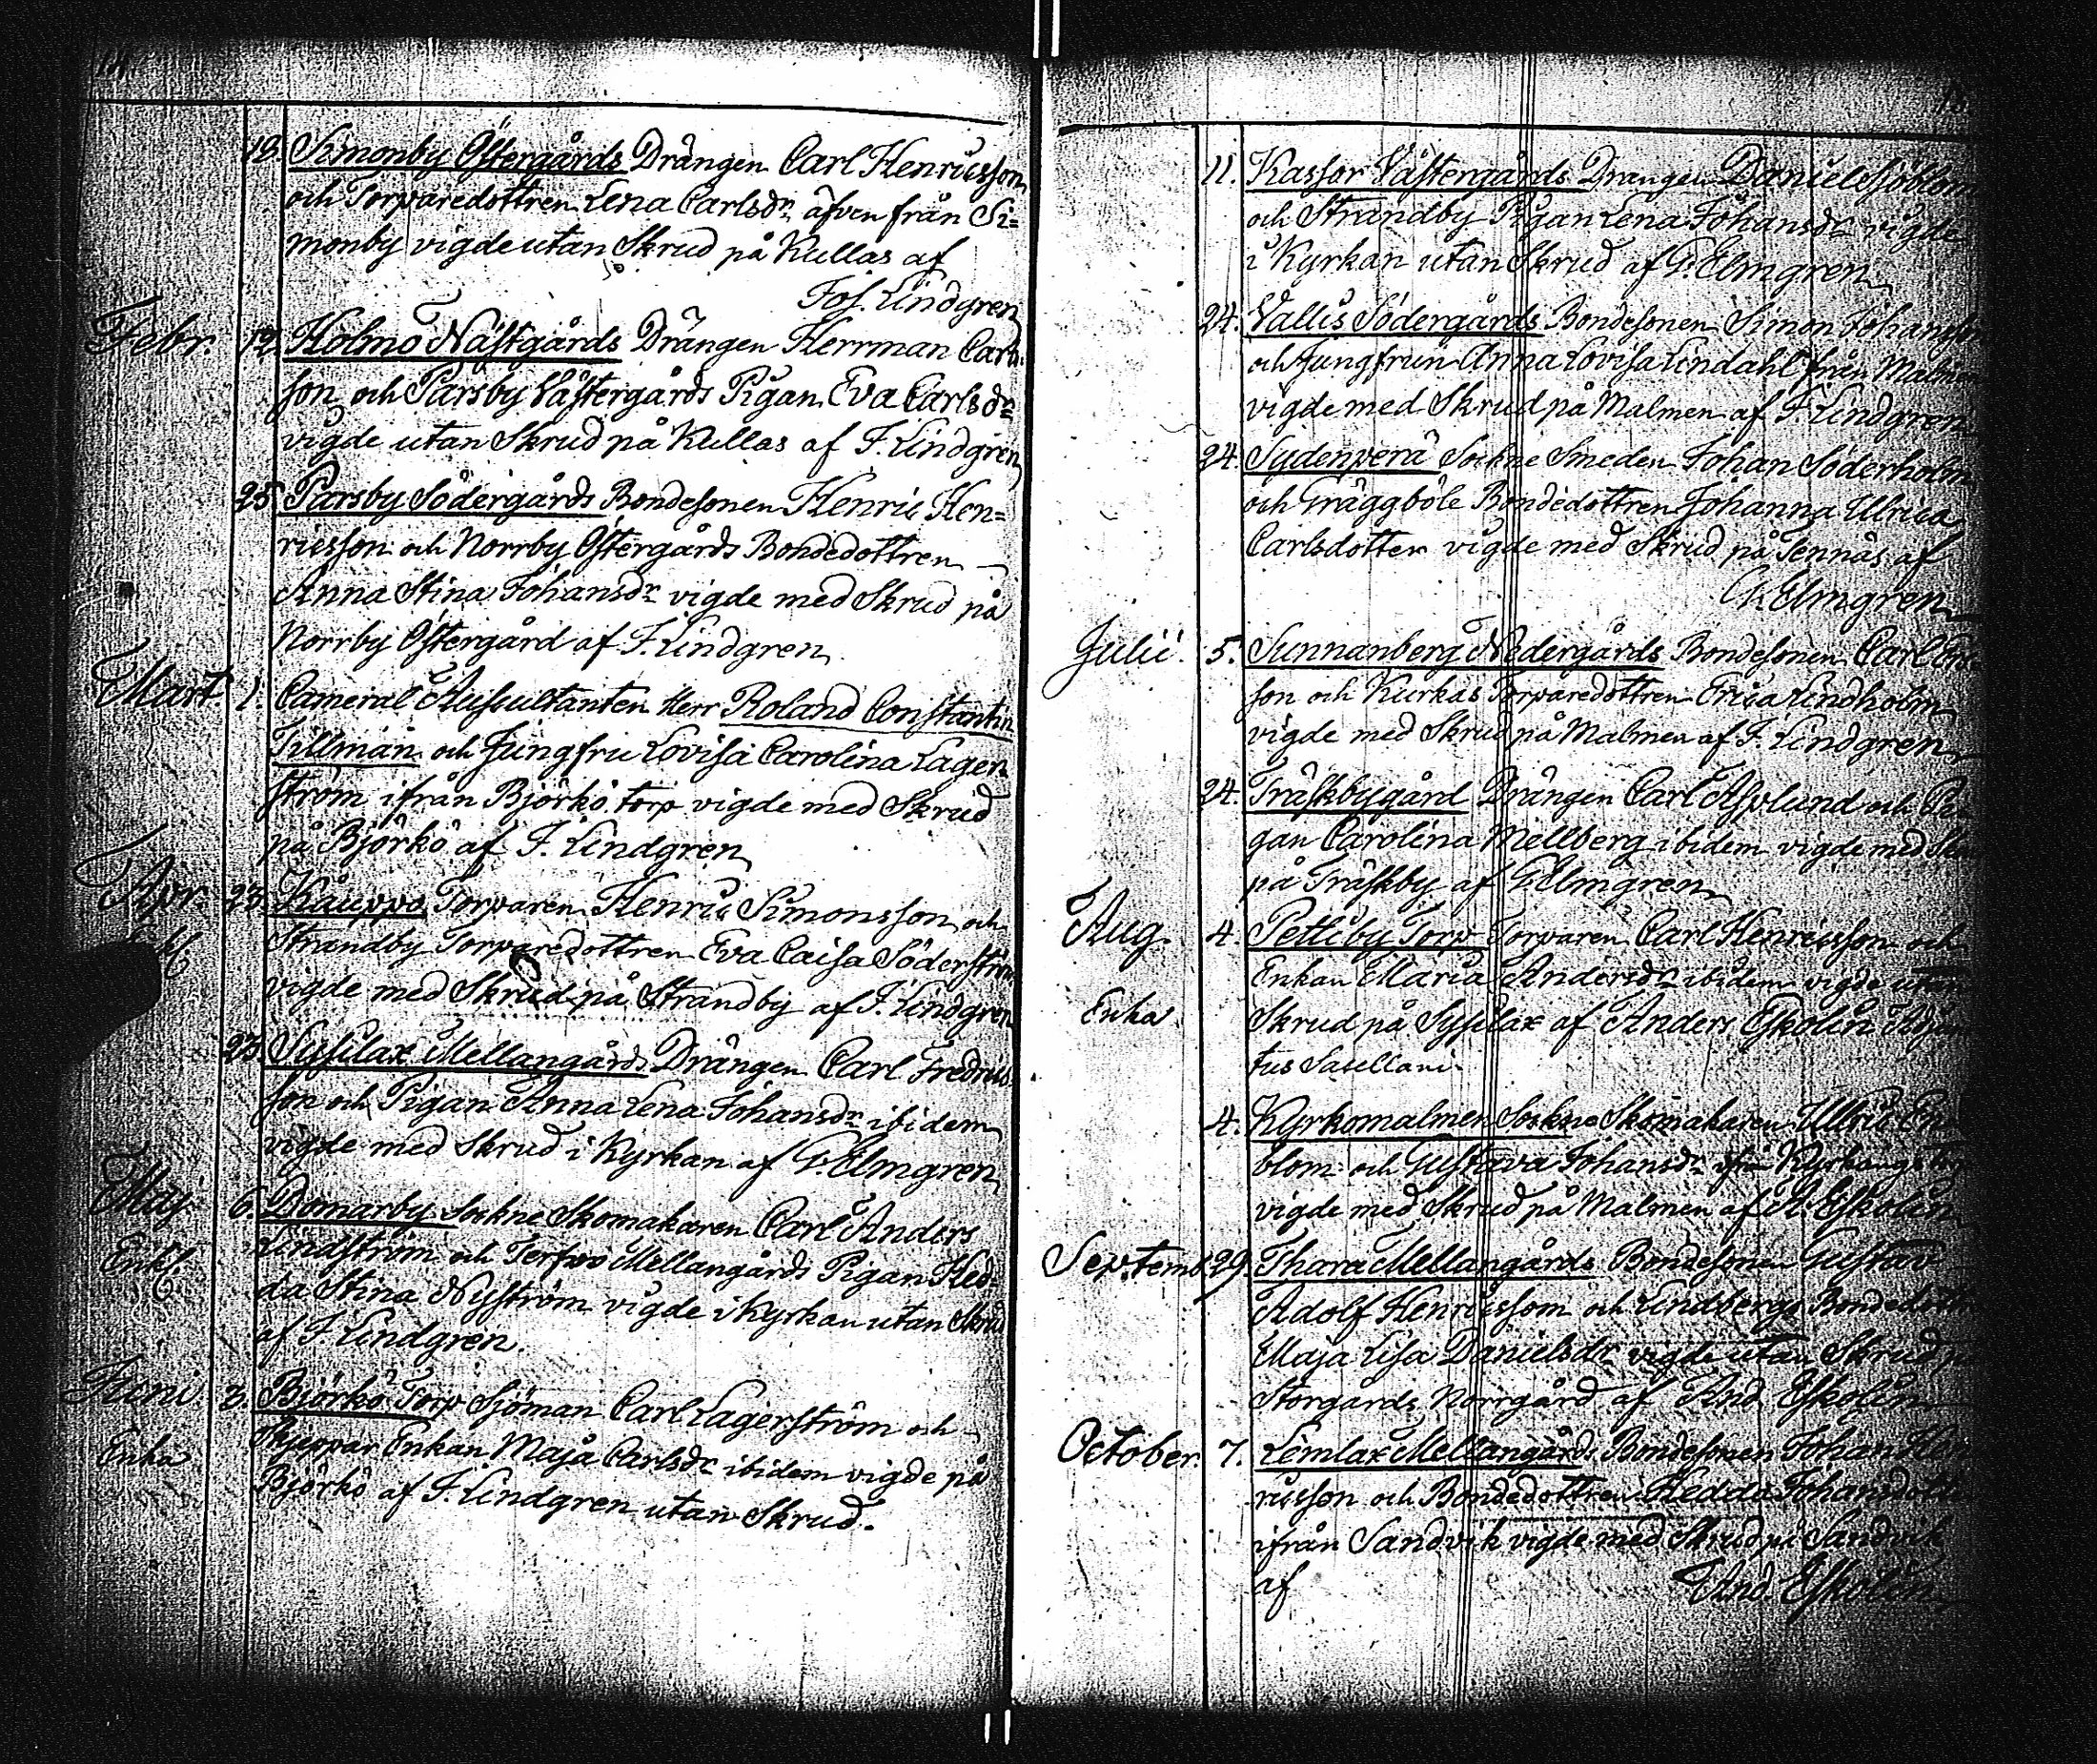 19. Simonby Östergårds Drängen Carl Henricsson
och Torparedottren Lena Carlsdr äfven från Si=
monby vigde utan Skrud på Kullas af
Jos. Lindgren
Febr. 12. Holmo Nästgårds Drängen Herrman Carls
son och Parsby Västergårds Pigan Eva Carlsdr
vigde utan Skrud på Kullas af J. Lindgren
25 Parsby Södergårds Bondesonen Henric Hen=
ricsson och Norrby Östergårds Bondedottren
Anna Stina Johansdr vigde med Skrud på
Norrby Östergård af J. Lindgren
Mart. 1. Cameral Auscultanten Herr Roland Constantin
Tillman och Jungfru Lovisa Carolina Lager
ström ifrån Björkö torp vigde med Skrud
på Björkö af J. Lindgren
Apr. 23. Kåuppo Torparen Henric Simonsson och
Strandby Torparedottren Eva Caisa Söderström
vigde med Skrud på Strandby af J. Lindgren
23. Sysilax Mellangårds Drängen Carl Fredrics
son och Pigan Anna Lena Johansdr ibidem
vigde med Skrud i Kyrkan af G. Elmgren
Maj 6. Domarby Sockne Skomakaren Carl Anders
Enkl. Lindström och Terfvo Mellangårds Pigan Hed=
da Stina Nyström vigde i Kyrkan utan Skrud
af J. Lindgren.
Juni 3. Björkö Torp Sjöman Carl Lagerström och
Enka Skeppar Enkan Maja Carlsdr ibidem vigde på
Björkö af J. Lindgren utan Skrud.
11. Kassor Västergårds Drängen Daniel Sjöblom
och Strandby Pigan Lena Johansdr vigde
i Kyrkan utan Skrud af G. Elmgren
24. Vallis Södergårds Bondesonen Simon Johansson
och Jungfrun Anna Lovisa Lindahl från Malmen
vigde med Skrud på Malmen af J. Lindgren
24. Sydenperä Sockne Smeden Johan Söderholm
och Träggböle Bondedottren Johanna Ulrica
Carlsdotter vigde med Skrud på Tennäs af
G. Elmgren
Julii. 5. Sunnanberg Nedergårds Bondesonen Carl
son och Kurkas Torparedottren Erica Lindholm
vigde med Skrud på Malmen af J. Lindgren
24. Träskbygård Drängen Carl Asplund och Pi
gan Carolina Mellberg ibidem vigde med
på Träskby af G. Elmgren
Aug. 4. Pettiby Torp Torparen Carl Henricsson och
Enkan Maria Andersdr ibidem vigde utan
Enka Skrud på Sysilax af Anders Eskolin Adjunc
tus Sacellani.
4. Kyrkomalmen Sockne Skomakaren Ulric
blom och Gustava Johansdr ifrån
vigde med Skrud på Malmen af A. Eskolin
Septemb. 29. Thara Mellangårds Bondesonen Gustav
Adolf Henricsson och Lindbergs Bondedottren
Maja Lisa Danielsdr vigde utan Skrud på
Storgårds Norrgård af And. Eskolin
October. 7. Lemlax Mellangårds Bondesonen Johan Hen
ricsson och Bondedottren Hedda Johansdotter
ifrån Sandvik vigde med Skrud på Sandvik
af And. Eskolin